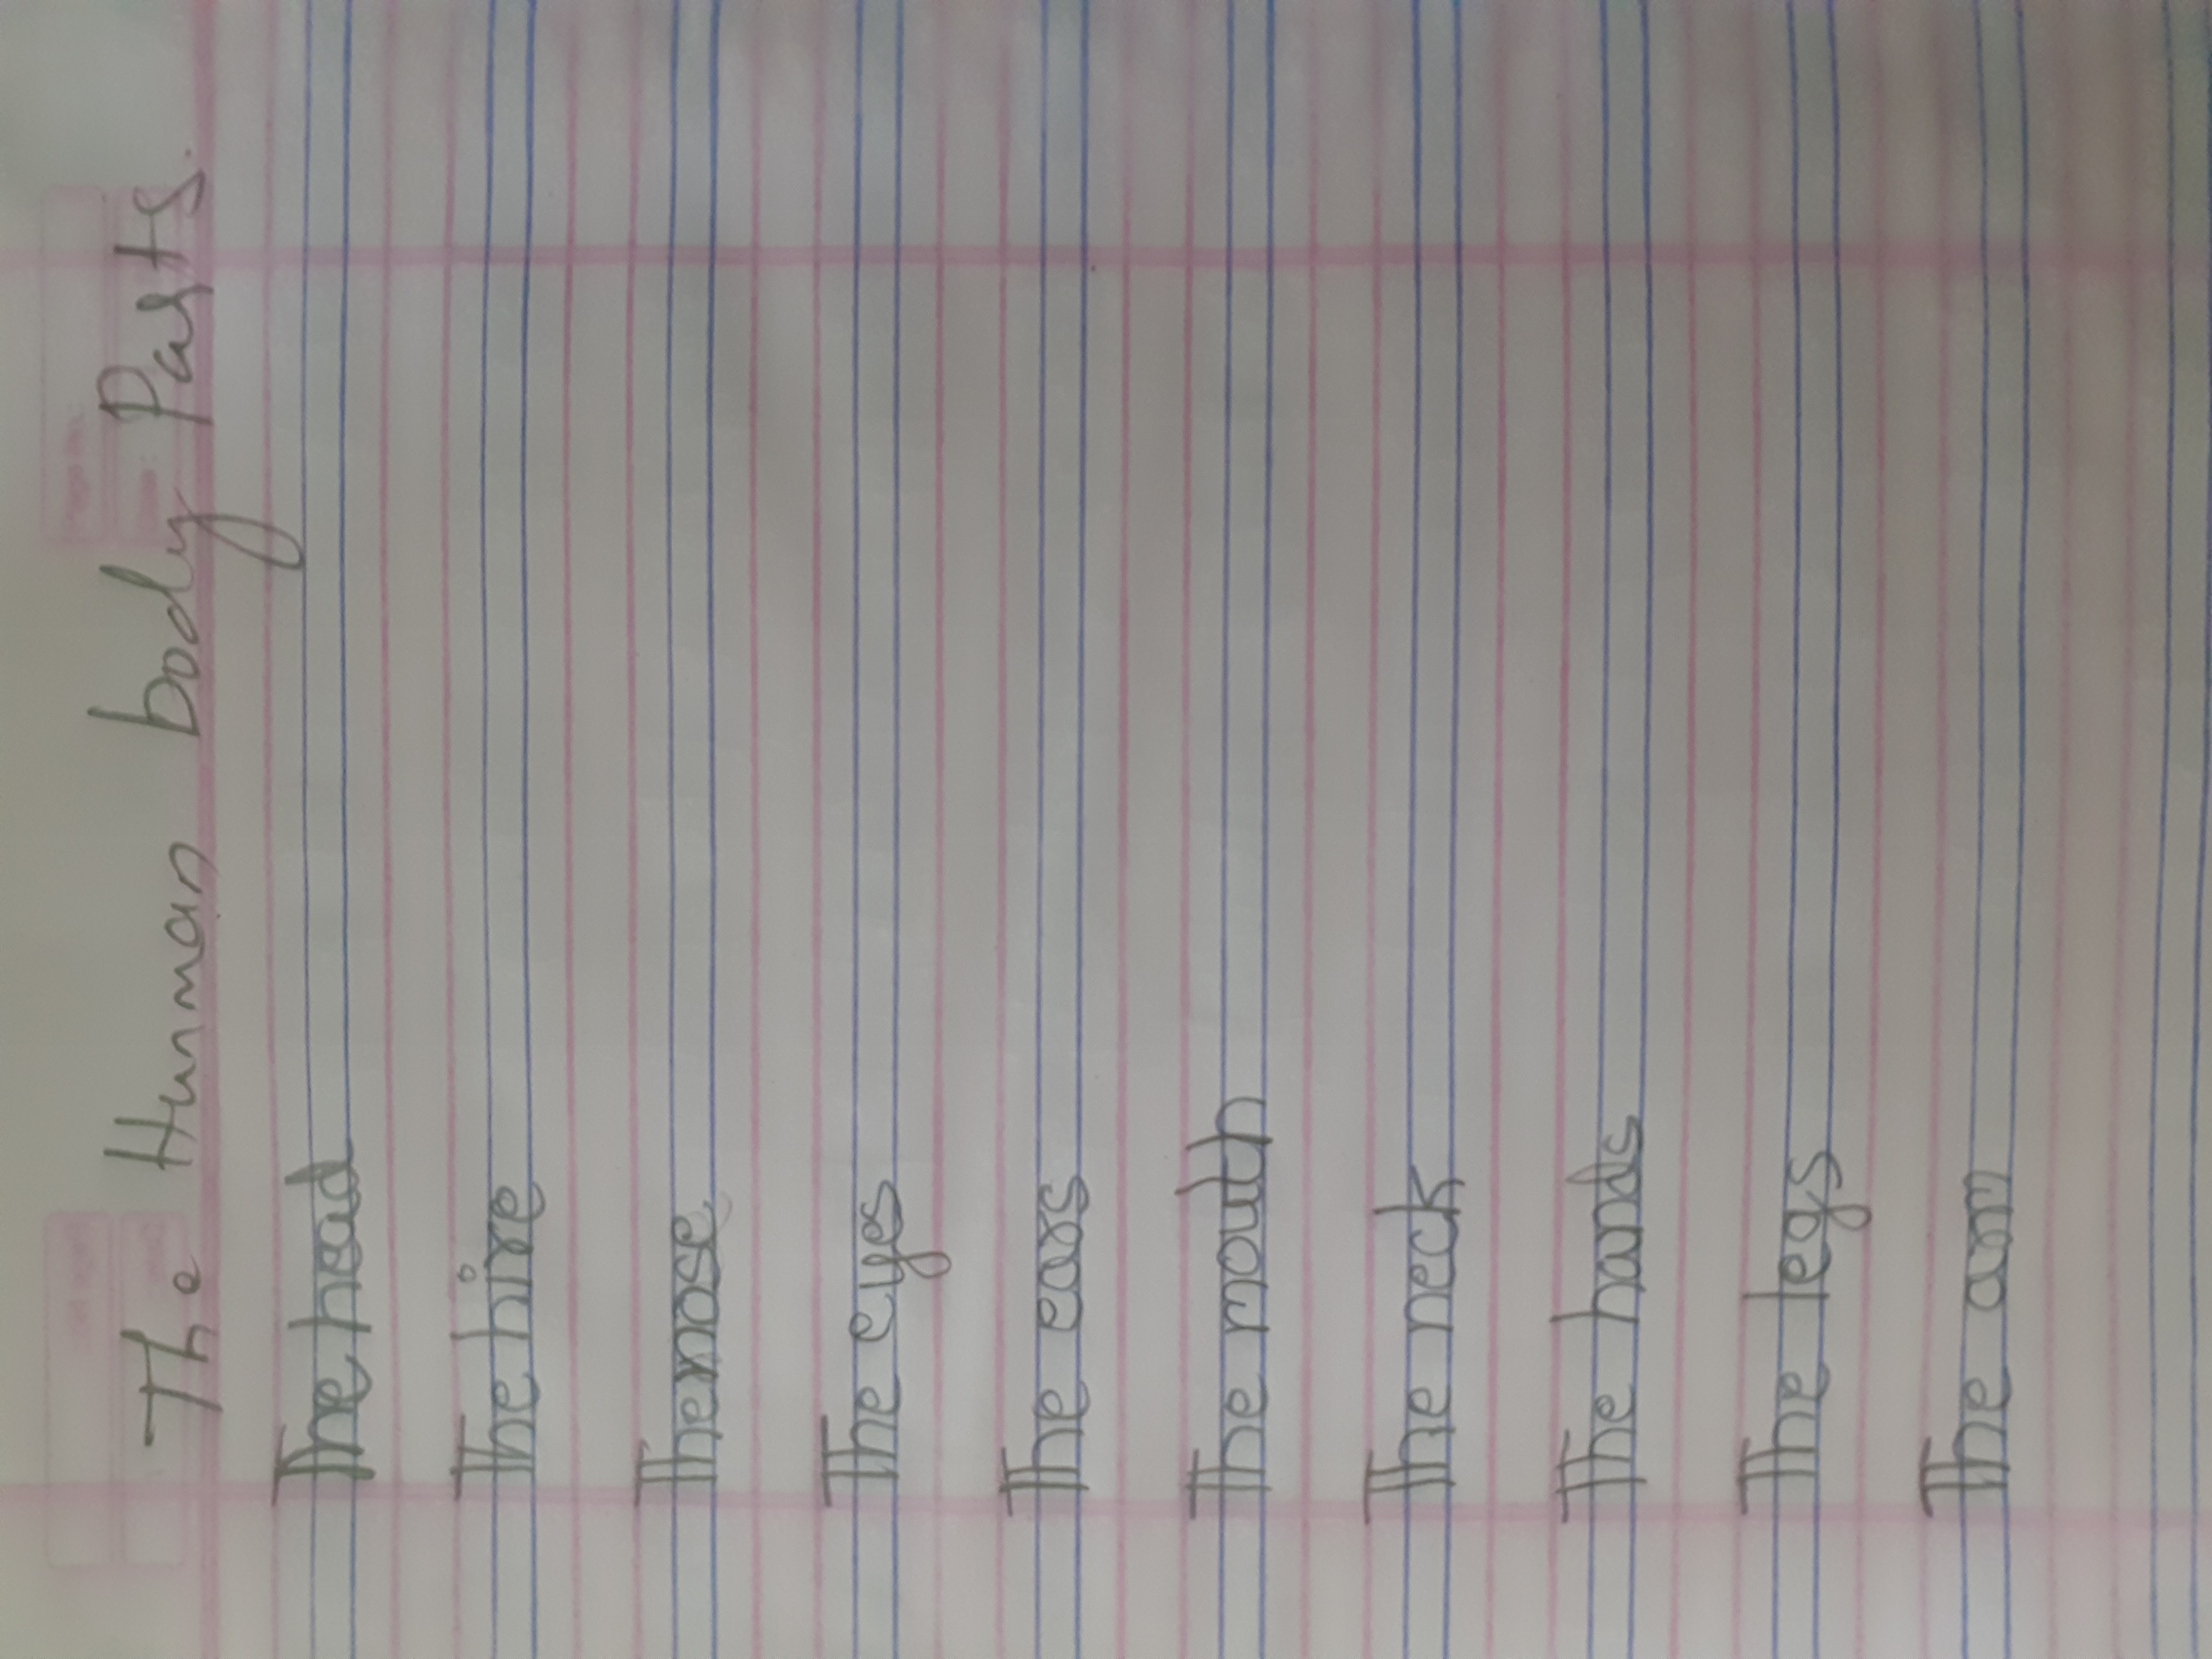 The Human body Parts.
The head
The hire
The nose
The eyes
The ears
The mouth
The neck
The hands
The legs
The arm